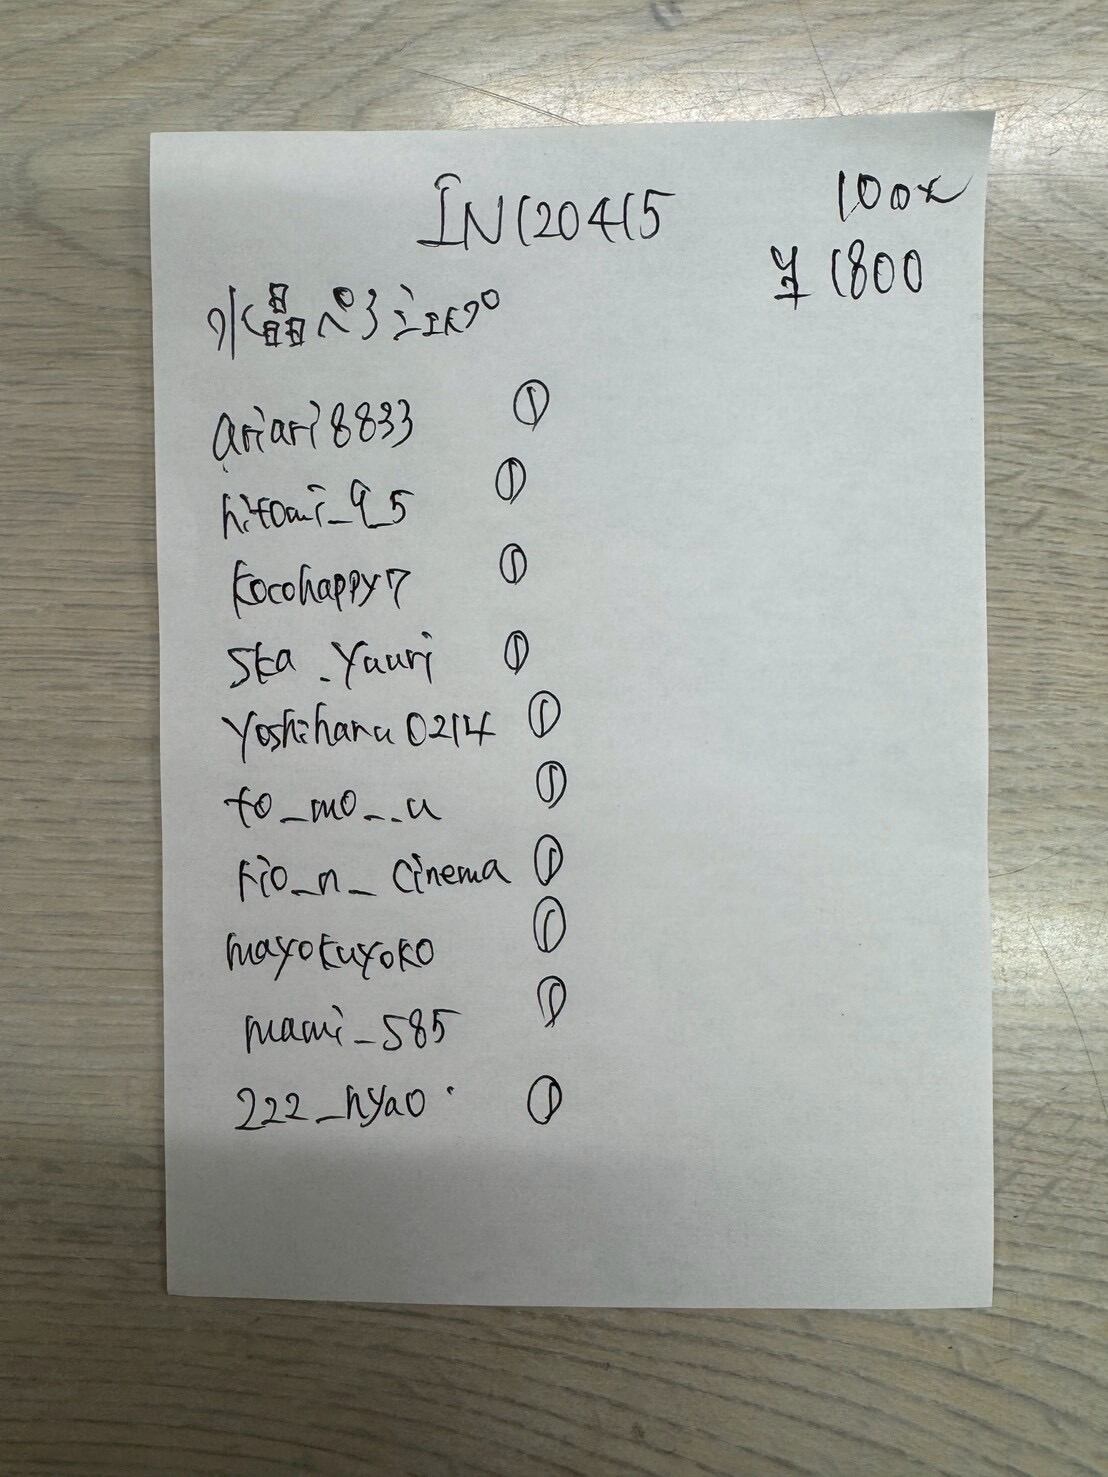 IN120415
100x
¥1800
水晶
ariari8833 ①
hitomi_9_5 ①
kocohappy7 ①
ska_yuuri ①
yoshiharu0214 ①
to_mo_._u ①
rio_n_cinema ①
mayokuyoko ①
mami_585 ①
222_hyao ①